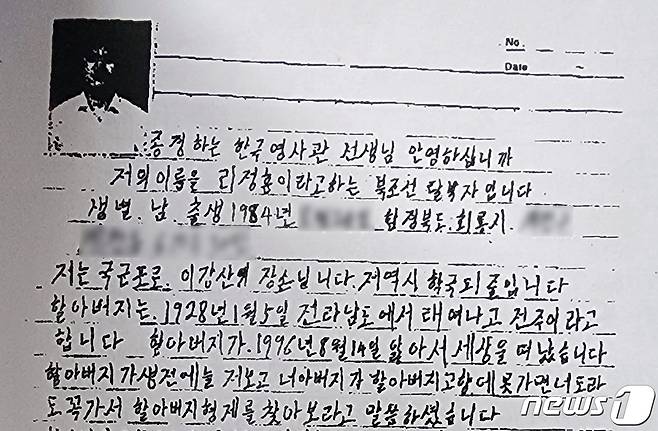 No.
Date
존경하는 한국영사관 선생님 안영하십니까
저의이름을 리정효이라고하는 북조선 탈북자입니다
생별. 남. 출생 1984년 함경북도. 회룡시.
저는 국군포로. 이강산의 장손님니다. 저역시 한국의 줄입니다
할아버지는. 1928년 1월 5일 전라남도에서 태여나고 전주이라고
합니다 할아버지가. 1996년 8월 14일 앓아서 세상을 떠났습니다
할아버지가생전에늘 저보고 너아버지가 할아버지고향에못가면너도라
도 꼭가서 할아버지형제를 찾아보라고 말씀하셨습니다
news1